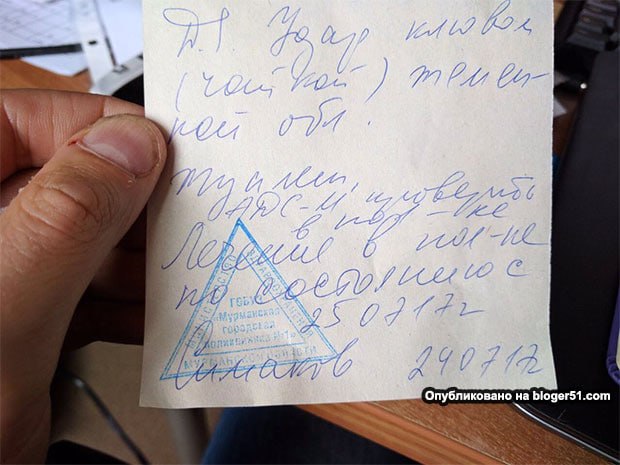 Д.S Удар клювом
(чайкой) темен-
ной обл.
Туалет,
АДС-М, проверить
в пол-ке
Лечение в пол-ке
по состоянию с
25 07 17г
ГОБУЗ
«Мурманская
городская
поликлиника №1»
МУРМАНСКОЙ ОБЛАСТИ
24 07 17г
Опубликовано на bloger51.com